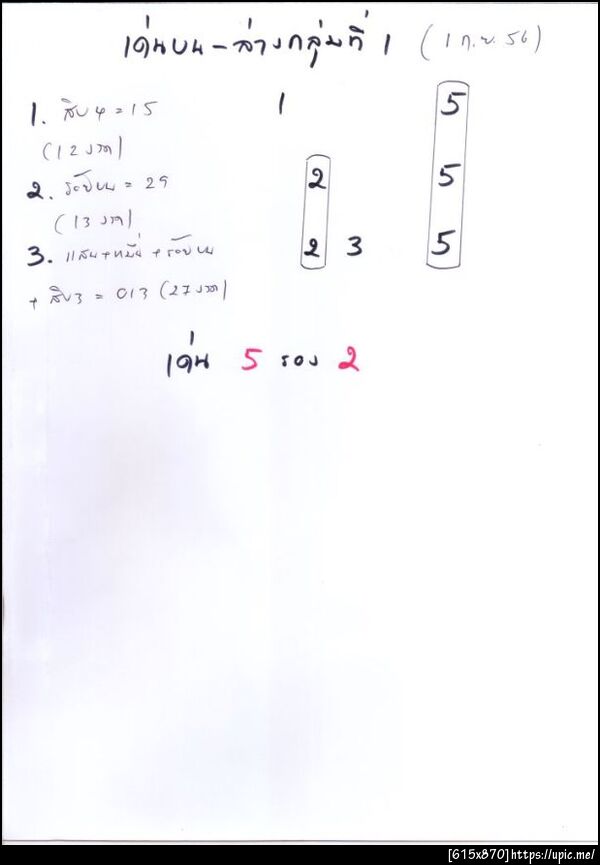 เด่นบน-ล่างกลุ่มที่ 1 (1 ก.ย. 56)
1. สิบ 4 = 15 1 5
(12 งวด)
2. ร้อยบน = 29 2 5
(13 งวด)
3. แสน+หมื่น+ร้อยบน 2 3 5
+ สิบ3 = 013 (27 งวด)
เด่น 5 รอง 2
[615x870]https://upic.me/